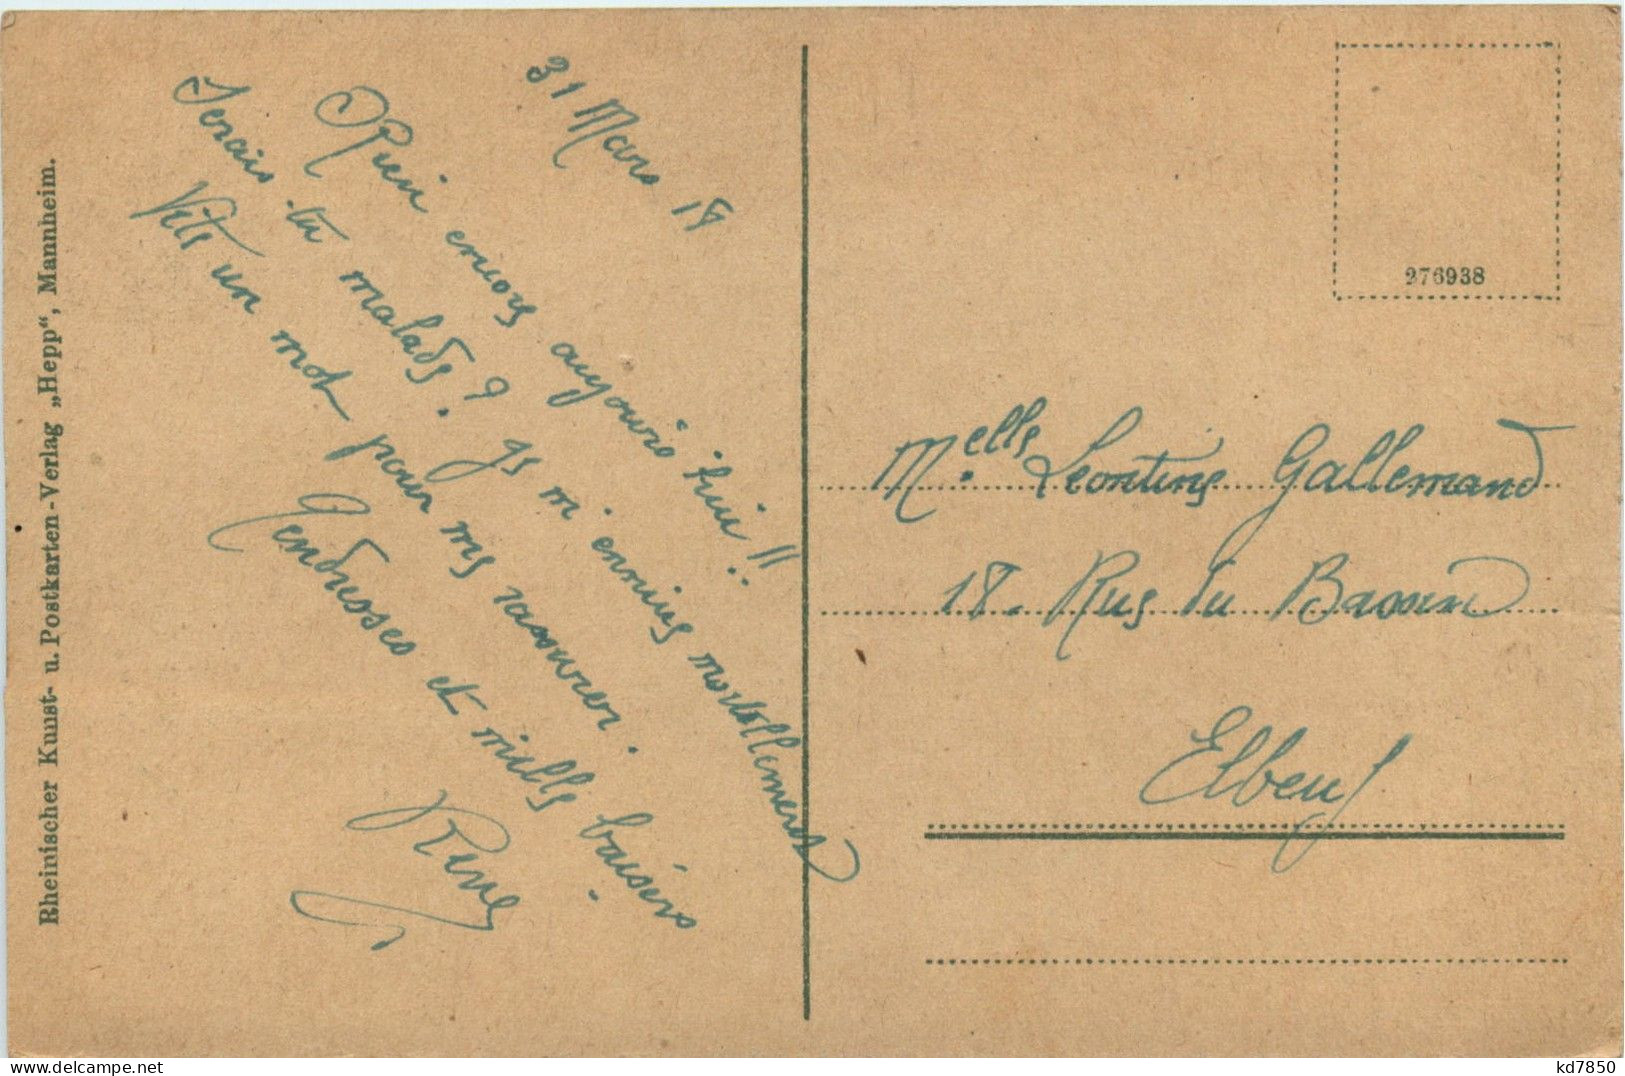 Rheinischer Kunst- u. Postkarten-Verlag „Hepp“, Mannheim.
31 Mars 18
Rien encore aujourd'hui!!
Serais-tu malade? Je m'ennuie mortellement
Vite un mot pour me rassurer.
Tendresses et mille baisers
René
276938
Melle Leontine Gallemand
18. Rue du Bassin
Elbeuf
delcampe.net
kd7850